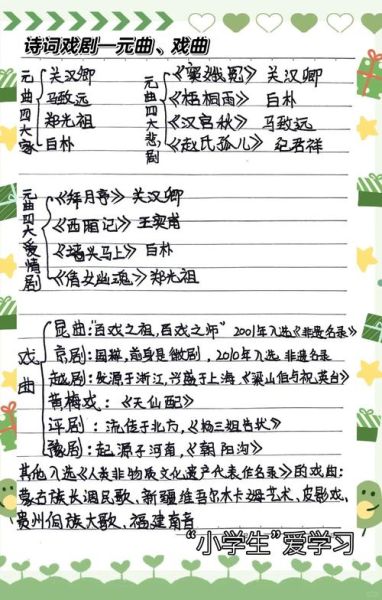 诗词戏剧—元曲、戏曲
元曲四大家
关汉卿
马致远
郑光祖
白朴
元曲四大悲剧
《窦娥冤》 关汉卿
《梧桐雨》 白朴
《汉宫秋》 马致远
《赵氏孤儿》 纪君祥
元曲四大爱情剧
《拜月亭》 关汉卿
《西厢记》 王实甫
《墙头马上》 白朴
《倩女幽魂》郑光祖
戏曲
昆曲:"百戏之祖,百戏之师" 2001年入选《非遗名录》
京剧:国粹,前身是徽剧,2010年入选 非遗名录
越剧:发源于浙江,兴盛于上海《梁山伯与祝英台》
黄梅戏:《天仙配》
评剧:流传于北方,《杨三姐告状》
豫剧:起源于河南,《朝阳沟》
其他入选《人类非物质文化遗产代表作名录》的戏曲:
蒙古族长调民歌、新疆维吾尔木卡姆艺术、皮影戏、
贵州侗族大歌、福建南音
"小学生"爱学习